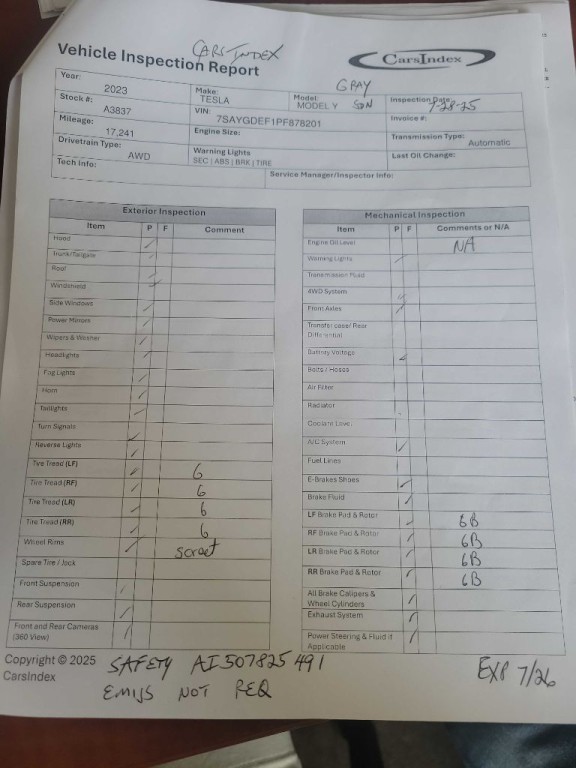 CARS INDEX
Vehicle Inspection Report
CarsIndex
GRAY
Year: 2023 Make: TESLA Model: MODEL Y SDN Inspection Date: 7-28-25
Stock #: A3837 VIN 7SAYGDEF1PF878201 Invoice #:
Mileage: 17,241 Engine Size: Transmission Type: Automatic
Drivetrain Type: AWD Warning Lights SEC | ABS | BRK | TIRE Last Oil Change:
Tech Info: Service Manager/Inspector Info:
Exterior Inspection
Item P F Comment
Hood
Trunk/Tailgate
Roof
Windshield
Side Windows
Power Mirrors
Wipers & Washer
Headlights
Fog Lights
Horn
Taillights
Turn Signals
Reverse Lights
Tire Tread (LF) 6
Tire Tread (RF) 6
Tire Tread (LR) 6
Tire Tread (RR) 6
Wheel Rims
Spare Tire / Jack
Front Suspension
Rear Suspension
Front and Rear Cameras
(360 View)
Mechanical Inspection
Item P F Comments or N/A
Engine Oil Level NA
Warning Lights
Transmission Fluid
4WD System
Front Axles
Transfer case/ Rear
Differential
Battery Voltage
Belts / Hoses
Air Filter
Radiator
Coolant Level
A/C System
Fuel Lines
E-Brakes Shoes
Brake Fluid
LF Brake Pad & Rotor 6B
RF Brake Pad & Rotor 6B
LR Brake Pad & Rotor 6B
RR Brake Pad & Rotor 6B
All Brake Calipers &
Wheel Cylinders
Exhaust System
Power Steering & Fluid if
Applicable
Copyright © 2025
CarsIndex
SAFETY AI507825491 EXP 7/26
EMIJS NOT REQ